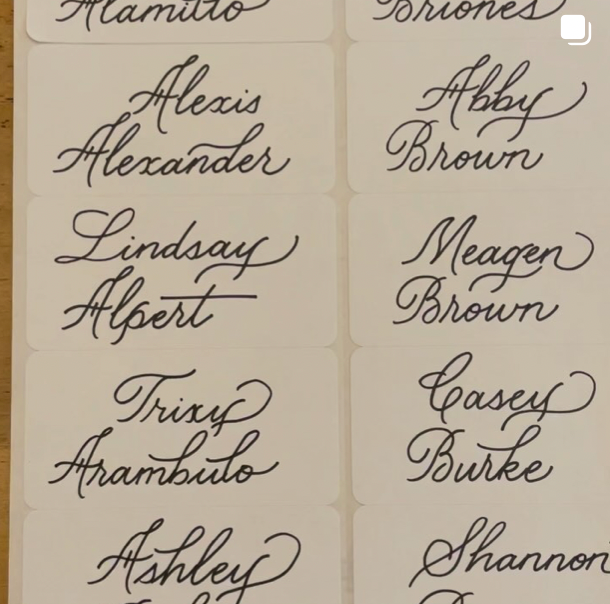 Alamitto
Alexis
Alexander
Lindsay
Alpert
Trixy
Arambulo
Ashley
Briones
Abby
Brown
Meagen
Brown
Casey
Burke
Shannon